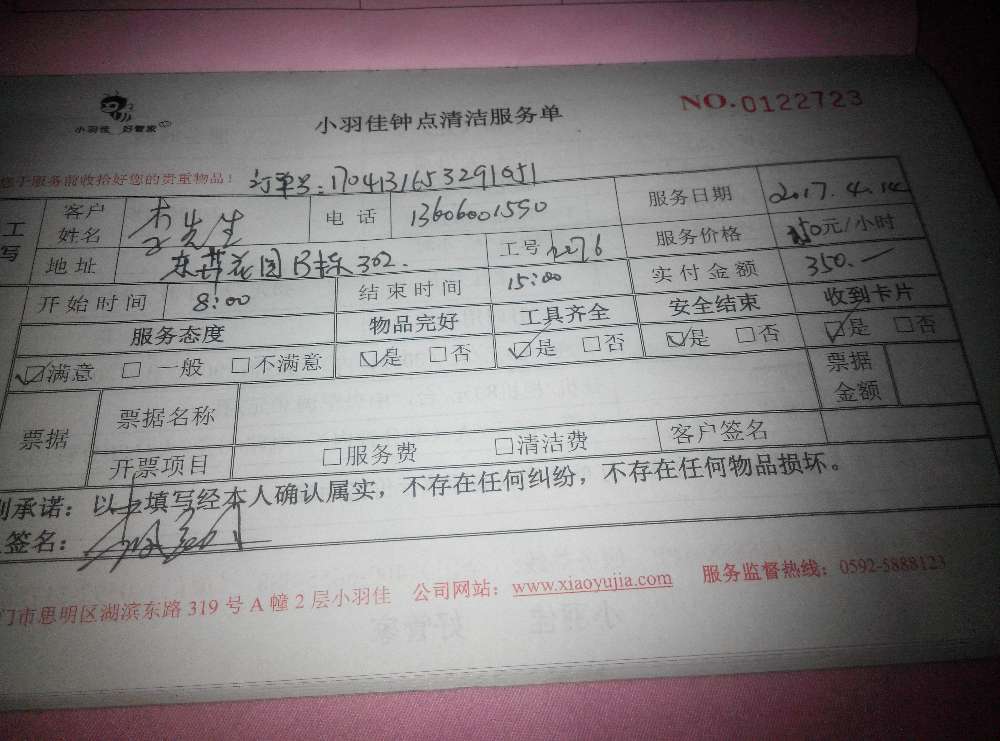 小羽佳 好管家
小羽佳钟点清洁服务单
NO.0122723
您于服务前收拾好您的贵重物品！ 订单号：1704131653291651
工 客户姓名 李先生 电话 13606001590 服务日期 2017.4.14
写 地址 东荞花园B栋302. 工号 2276 服务价格 50元/小时
开始时间 8:00 结束时间 15:00 实付金额 350.一
服务态度 物品完好 工具齐全 安全结束 收到卡片
☑满意 □一般 □不满意 ☑是 □否 ☑是 □否 ☑是 □否 ☑是 □否
票据 票据名称 票据金额
开票项目 □服务费 □清洁费 客户签名
承诺：以上填写经本人确认属实，不存在任何纠纷，不存在任何物品损坏。
签名：
门市思明区湖滨东路 319 号 A 幢 2 层小羽佳 公司网站：www.xiaoyujia.com 服务监督热线：0592-5888123